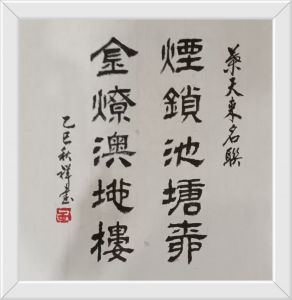 葉天東名聯
煙鎖池塘柳
金燎澳地樓
乙巳秋祥書